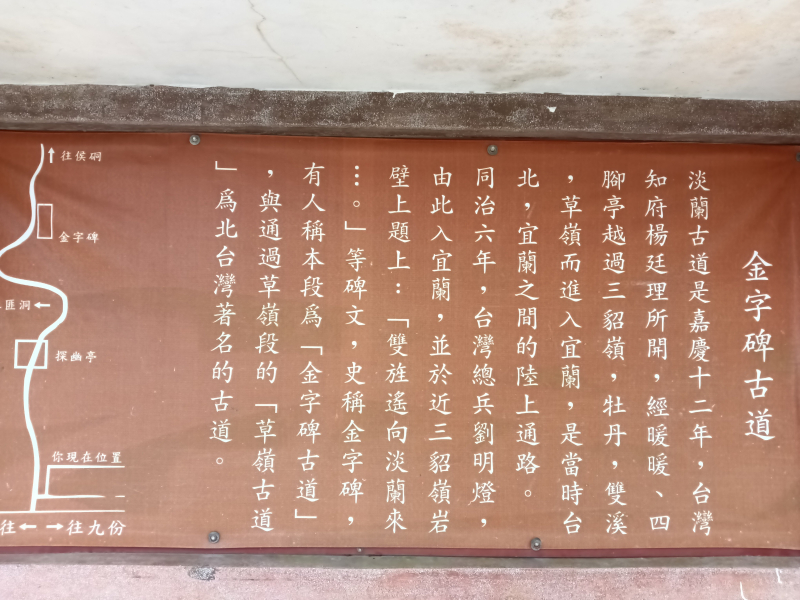 金字碑古道
淡蘭古道是嘉慶十二年，台灣
知府楊廷理所開，經暖暖、四
腳亭越過三貂嶺，牡丹，雙溪
，草嶺而進入宜蘭，是當時台
北，宜蘭之間的陸上通路。
同治六年，台灣總兵劉明燈，
由此入宜蘭，並於近三貂嶺岩
壁上題上：「雙旌遙向淡蘭來
…。」等碑文，史稱金字碑，
有人稱本段為「金字碑古道」
，與通過草嶺段的「草嶺古道
」為北台灣著名的古道。
↑往侯硐
金字碑
匪洞←
探幽亭
你現在位置
往← →往九份